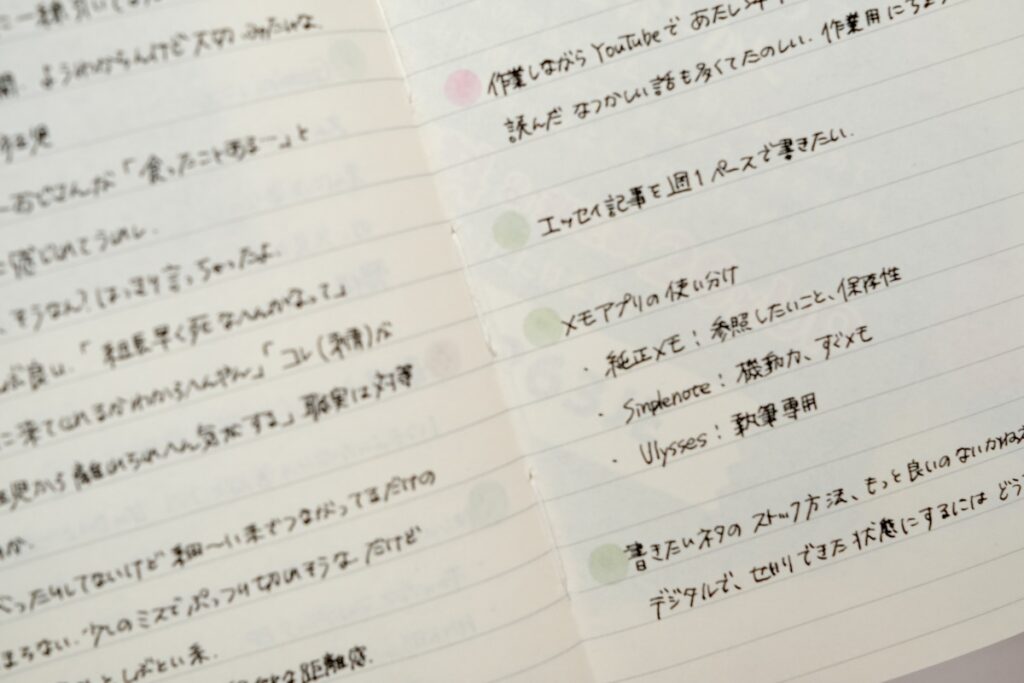 一緒
ようわからんけど大切みたいな
「食ったことあるー」と
感じれてうれし
そうなん?はっきり言っちゃったよ.
が良い.「組長早く死なへんかなって」
に来てくれるかわからへんやん」「コレ(素情)が
から離れられへん気がする」聡実は対等
が.
べったりしてないけど細〜い糸でつながってるだけの
まらない.少しのミスでぷっつり切れそうな だけど
としぶとい糸.
な距離感.
作業しながら YouTubeで あたしンち
読んだ なつかしい話も多くてたのしい. 作業用にちょう
エッセイ記事を週1ペースで書きたい.
メモアプリの使い分け
・純正メモ:参照したいこと、保存性
・Simplenote:機動力、すぐメモ
・Ulysses:執筆専用
書きたいネタの ストック方法、もっと良いのないかね
デジタルで、せいりできた状態にするには どう